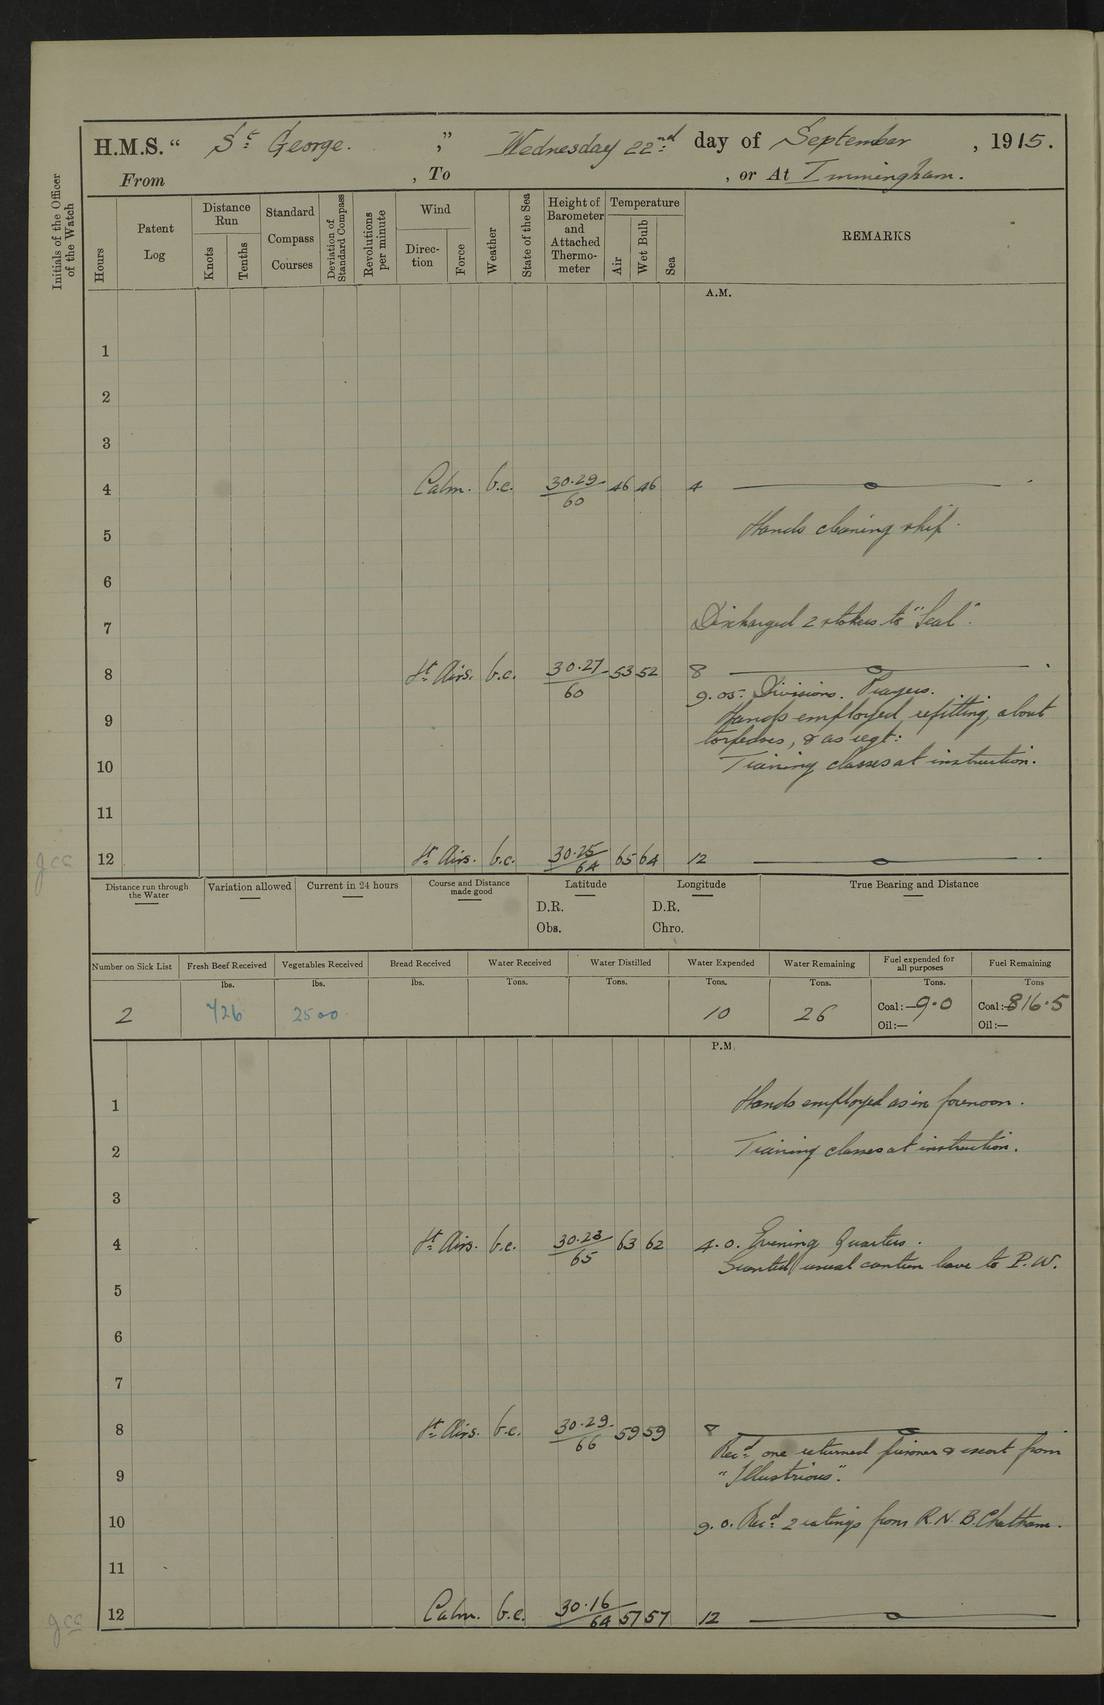 H.M.S. “ St George. ” Wednesday 22nd day of September, 1915.
From , To , or At Immingham.
Initials of the Officer of the Watch
Hours
Patent Log
Distance Run
Knots
Tenths
Standard Compass Courses
Deviation of Standard Compass
Revolutions per minute
Wind
Direction
Force
Weather
State of the Sea
Height of Barometer and Attached Thermometer
Temperature
Air
Wet Bulb
Sea
REMARKS
A.M.
1
2
3
4 Calm. b.c. 30.29/60 46 46 4
5 Hands cleaning ship.
6
7 Discharged 2 stokers to "Seal".
8 Lt Airs. b.c. 30.27/60 53 52 8
9.05. Divisions. Prayers.
9 Hands employed, refitting, about
torpedoes, & as reqt:
10 Training classes at instruction.
11
12 Lt Airs. b.c. 30.25/64 65 64 12
Distance run through the Water
Variation allowed
Current in 24 hours
Course and Distance made good
Latitude
D.R.
Obs.
Longitude
D.R.
Chro.
True Bearing and Distance
Number on Sick List
Fresh Beef Received
Vegetables Received
Bread Received
Water Received
Water Distilled
Water Expended
Water Remaining
Fuel expended for all purposes
Fuel Remaining
lbs. lbs. lbs. Tons. Tons. Tons. Tons. Tons. Tons
2 726 2500 10 26 Coal:— 9.0 Coal:— 816.5
Oil:— Oil:—
P.M.
1 Hands employed as in forenoon.
2 Training classes at instruction.
3
4 Lt Airs. b.c. 30.23/65 63 62 4.0. Evening Quarters.
Granted usual canteen leave to P.W.
5
6
7
8 Lt Airs. b.c. 30.29/66 59 59 8
Recd one returned prisoner & escort from
9 "Illustrious".
10 9.0. Recd 2 ratings from R.N.B. Chatham.
11
12 Calm. b.c. 30.16/64 57 57 12